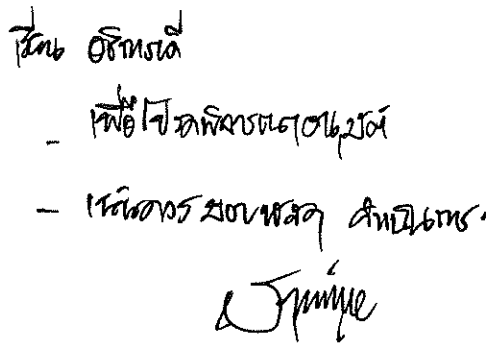 เรียน อธิการบดี
- เพื่อโปรดพิจารณาอนุมัติ
- เห็นควรมอบพัสดุ ดำเนินการ